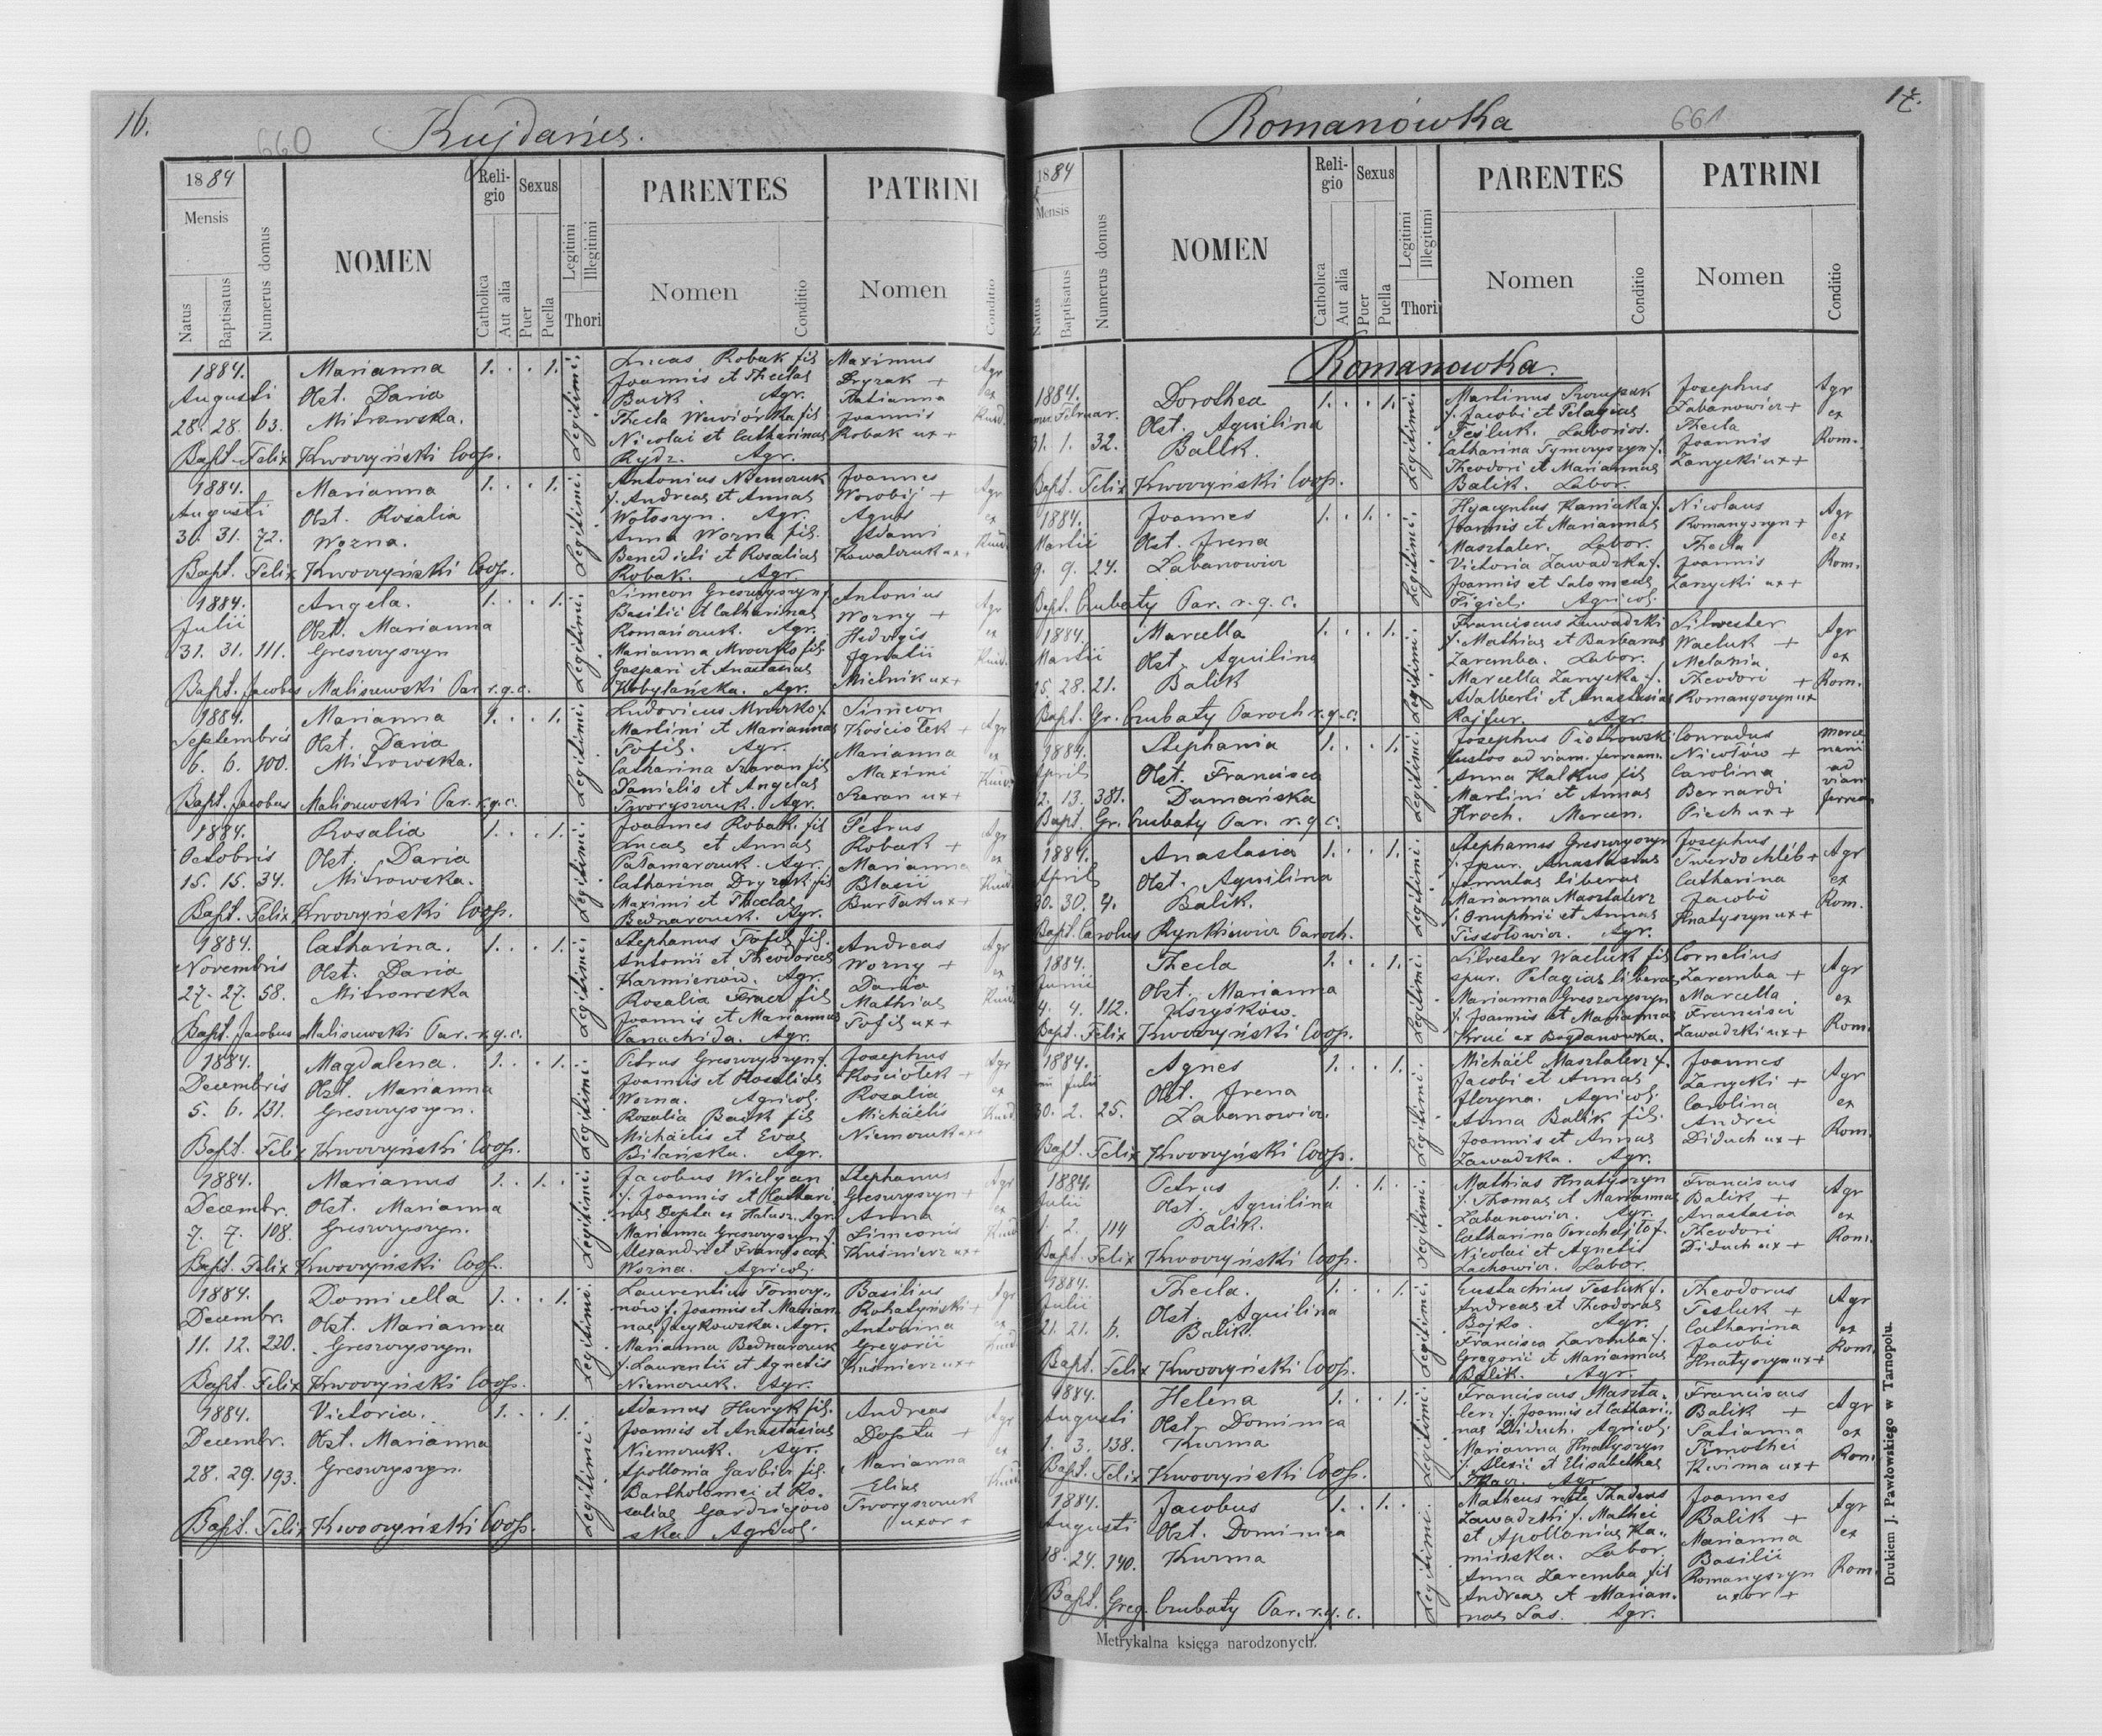 16.
660
Kujdańce.
1884
Mensis
Natus
Baptisatus
Numerus domus
NOMEN
Reli-
gio
Catholica
Aut alia
Sexus
Puer
Puella
Legitimi
Illegitimi
Thori
PARENTES
Nomen
Conditio
PATRINI
Nomen
Conditio
1884.
Augusti
28. 28. 63.
Marianna
Obst. Daria
Mitrowska.
1. . . 1.
Legitimi.
Lucas Robak fil
Joannis et Theclae
Bacik. Agr.
Thecla Wiwiórka fil
Nicolai et Catharinae
Rydz. Agr.
Maximus
Dryzak +
Tatianna
Joannis
Robak ux +
Agr
ex
Kuid.
Bapt. Felix Kwoczyński Coop.
1884.
Augusti
30. 31. 72.
Marianna
Obst. Rosalia
Wozna.
1. . . 1.
Legitimi.
Antonius Niemczuk
f. Andreae et Annae
Wołoszyn. Agr.
Anna Wozna fil.
Benedicti et Rosaliae
Robak. Agr.
Joannes
Worobij +
Agnes
Adami
Kowalczuk ux +
Agr
ex
Kuid.
Bapt. Felix Kwoczyński Coop.
1884.
Julii
31. 31. 111.
Angela.
Obst. Marianna
Greszczyszyn
1. . . 1.
Legitimi.
Simeon Greszczyszyn f.
Basilii et Catharinae
Romańczuk. Agr.
Marianna Mroczko fil
Gaspari et Anastasiae
Kobylańska. Agr.
Antonius
Wozny +
Hedvigis
Ignatii
Mielnik ux +
Agr
ex
Kuid.
Bapt. Jacobus Maliszewski Par. r. g. c.
1884.
Septembris
6. 6. 100.
Marianna
Obst. Daria
Mitrowska.
1. . . 1.
Legitimi.
Ludovicus Mroczko f.
Martini et Mariannae
Tofil. Agr.
Catharina Szaran fil
Danielis et Angelae
Tworyszczuk. Agr.
Simeon
Kościołek +
Marianna
Maximi
Szaran ux +
Agr
ex
Kuid.
Bapt. Jacobus Maliszewski Par. r. g. c.
1884.
Octobris
15. 15. 34.
Rosalia
Obst. Daria
Mitrowska.
1. . . 1.
Legitimi.
Joannes Robak. fil
Lucae et Annae
Pałamarczuk. Agr.
Catharina Dryzak fil
Maximi et Theclae
Bednarczuk. Agr.
Petrus
Robak +
Marianna
Blasii
Burtak ux +
Agr
ex
Kuid.
Bapt. Felix Kwoczyński Coop.
1884.
Novembris
27. 27. 58.
Catharina.
Obst. Daria
Mitrowska
1. . . 1.
Legitimi.
Stephanus Tofil fil.
Antonii et Theodorae
Kazmierów. Agr.
Rosalia Tracz fil
Joannis et Mariannae
Panachida. Agr.
Andreas
Wozny +
Daria
Mathiae
Tofil ux +
Agr
ex
Kuid.
Bapt. Jacobus Maliszewski Par. r. g. c.
1884.
Decembris
5. 6. 131.
Magdalena.
Obst. Marianna
Greszczyszyn.
1. . . 1.
Legitimi.
Petrus Greszczyszyn f.
Joannis et Rosaliae
Wozna. Agricol.
Rosalia Bacik fil
Michäelis et Evae
Bilańska. Agr.
Josephus
Kościołek +
Rosalia
Michäelis
Niemczuk ux +
Agr
ex
Kuid.
Bapt. Felix Kwoczyński Coop.
1884.
Decembr.
7. 7. 108.
Marianus
Obst. Marianna
Greszczyszyn.
1. . 1. .
Legitimi.
Jacobus Wielgan
f. Joannis et Cathari-
nae Dopta ex Halusz. Agr.
Marianna Greszczyszyn f.
Alexandri et Franciscae
Wozna. Agricol.
Stephanus
Greszczyszyn +
Anna
Simeonis
Kuśnierz ux +
Agr
ex
Kuid.
Bapt. Felix Kwoczyński Coop.
1884.
Decembr.
11. 12. 220.
Domicella
Obst. Marianna
Greszczyszyn.
1. . . 1.
Legitimi.
Laurentius Tomory-
now f. Joannis et Marian-
nae Jacykowska. Agr.
Marianna Bednarczuk
f. Laurentii et Agnetis
Niemczuk. Agr.
Basilius
Rohatyński +
Antonina
Gregorii
Kuśnierz ux +
Agr
ex
Kuid.
Bapt. Felix Kwoczyński Coop.
1884.
Decembr.
28. 29. 193.
Victoria.
Obst. Marianna
Greszczyszyn.
1. . . 1.
Legitimi.
Adamus Huryk fil.
Joannis et Anastasiae
Niemczuk. Agr.
Apollonia Garbicz fil.
Bartholomei et Ro-
saliae Gardziejow
ska Agricol.
Andreas
Dopta +
Marianna
Eliae
Tworyszczuk
uxor +
Agr
ex
Kuid
Bapt. Felix Kwoczyński Coop.
17.
661
Romanówka
1884
Mensis
Natus
Baptisatus
Numerus domus
NOMEN
Reli-
gio
Catholica
Aut alia
Sexus
Puer
Puella
Legitimi
Illegitimi
Thori
PARENTES
Nomen
Conditio
PATRINI
Nomen
Conditio
Romanowka.
1884.
Februar.
31. 1. 32.
Dorothea
Obst. Aquilina
Balik.
1. . . 1.
Legitimi.
Martinus Szczupak
f. Jacobi et Pelagiae
Tesluk. Laborios.
Catharina Tymczyszyn f.
Theodori et Mariannae
Balik. Labor.
Josephus
Labanowicz +
Thecla
Joannis
Zarycki ux +
Agr
ex
Rom.
Bapt. Felix Kwoczyński Coop.
1884.
Martii
9. 9. 24.
Joannes
Obst. Irena
Labanowicz
1. . 1. .
Legitimi.
Hyacyntus Kaniaka f.
Joannis et Mariannae
Masztaler. Labor.
Victoria Zawadzka f.
Joannis et Salomeae
Figiel. Agricol.
Nicolaus
Romanyszyn +
Thecla
Joannis
Zarycki ux +
Agr
ex
Rom.
Bapt. Czubaty Par. r. g. c.
1884.
Martii
15. 28. 21.
Marcella
Obst. Aquilina
Balik
1. . . 1.
Legitimi.
Franciscus Zawadzki
f. Mathiae et Barbarae
Zaremba. Labor.
Marcella Zarycka f.
Adalberti et Anastasiae
Rajfur. Agr.
Silvester
Wacluk +
Melania
Theodori +
Romanyszyn ux
Agr
ex
Rom.
Bapt. Gr. Czubaty Paroch r. g. c.
1884.
April
12. 13. 381.
Stephania
Obst. Francisca
Dumańska
1. . . 1.
Legitimi.
Josephus Piotrowski
Custos ad viam. ferream.
Anna Kalkus fil
Martini et Annae
Hroch. Mercen.
Conradus
Nicołów +
Carolina
Bernardi
Piech ux +
Merce
narii
ad
viam
ferream
Bapt. Gr. Czubaty Par. r. g. c.
1884.
April
30. 30. 4.
Anastasia
Obst. Aquilina
Balik.
1. . . 1.
Legitimi.
Stephanus Greszczyszyn
f. spur. Anastasiae
famulae liberae
Marianna Masztalerz
f. Onuphrii et Annae
Tissołowicz. Agr.
Josephus
Twerdochlib +
Catharina
Jacobi
Hnatyszyn ux +
Agr
ex
Rom.
Bapt. Carolus Rynkiewicz Paroch.
1884.
Junii
4. 4. 112.
Thecla
Obst. Marianna
Jaszyśków.
1. . . 1.
Legitimi.
Silvester Wacluk fil
spur. Pelagiae liberae
Marianna Greszczyszyn
f. Joannis et Mariannae
Kruć ex Bogdanowka.
Cornelius
Zaremba +
Marcella
Francisci
Zawadzki ux +
Agr
ex
Rom.
Bapt. Felix Kwoczyński Coop.
1884.
Julii
30. 2. 25.
Agnes
Obst. Irena
Labanowicz.
1. . . 1.
Legitimi.
Michäel Masztalerz f.
Jacobi et Annae
Horyna. Agricol.
Anna Balik fil.
Joannis et Annae
Zawadzka. Agr.
Joannes
Zarycki +
Carolina
Andrei
Diduch ux +
Agr
ex
Rom.
Bapt. Felix Kwoczyński Coop.
1884.
Julii
1. 2. 114
Petrus
Obst. Aquilina
Balik.
1. . 1. .
Legitimi.
Mathias Hnatyszyn
f. Thomae et Mariannae
Labanowicz. Agr.
Catharina Perchelyto f.
Nicolai et Agnetis
Lachowicz. Labor.
Franciscus
Balik +
Anastasia
Theodori
Diduch ux +
Agr
ex
Rom.
Bapt. Felix Kwoczyński Coop.
1884.
Julii
21. 21. 6.
Thecla.
Obst. Aquilina
Balik.
1. . . 1.
Legitimi.
Eustachius Tesluk f.
Andreae et Theodorae
Bojko. Agr.
Francisca Zaremba f.
Gregorii et Mariannae
Balik. Agr.
Theodorus
Tesluk +
Catharina
Jacobi
Hnatyszyn ux +
Agr
ex
Rom.
Bapt. Felix Kwoczyński Coop.
1884.
Augusti
1. 3. 138.
Helena
Obst. Dominica
Kurma
1. . . 1.
Legitimi.
Franciscus Maszta-
lerz f. Joannis et Cathari-
nae Diduch. Agricol.
Marianna Hnatyszyn
f. Alexii et Elisabethae
Agr
Franciscus
Balik +
Tatianna
Timothei
Kurma ux +
Agr
ex
Rom
Bapt. Felix Kwoczyński Coop.
1884.
Augusti
18. 24. 140.
Jacobus
Obst. Dominica
Kurma
1. . 1. .
Legitimi.
Matheus recte Thadeus
Zawadzki f. Mathei
et Apolloniae Ka-
mińska. Labor.
Anna Zaremba fil
Andreae et Marian-
nae Sas. Agr.
Joannes
Balik +
Marianna
Basilii
Romanyszyn
uxor +
Agr
ex
Rom.
Bapt. Greg. Czubaty Par. r. g. c.
Metrykalna księga narodzonych.
Drukiem J. Pawłowskiego w Tarnopolu.